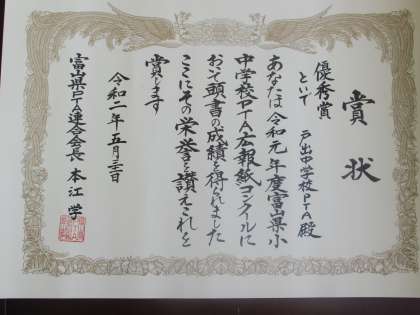 賞状
優秀賞
といて
戸出中学校PTA殿
あなたは令和元年度富山県小
中学校PTA広報紙コンクールに
おいて頭書の成績を得られました
ここにその栄誉を讃えこれを
賞します
令和二年五月三日
富山県PTA連合会長 本江 学